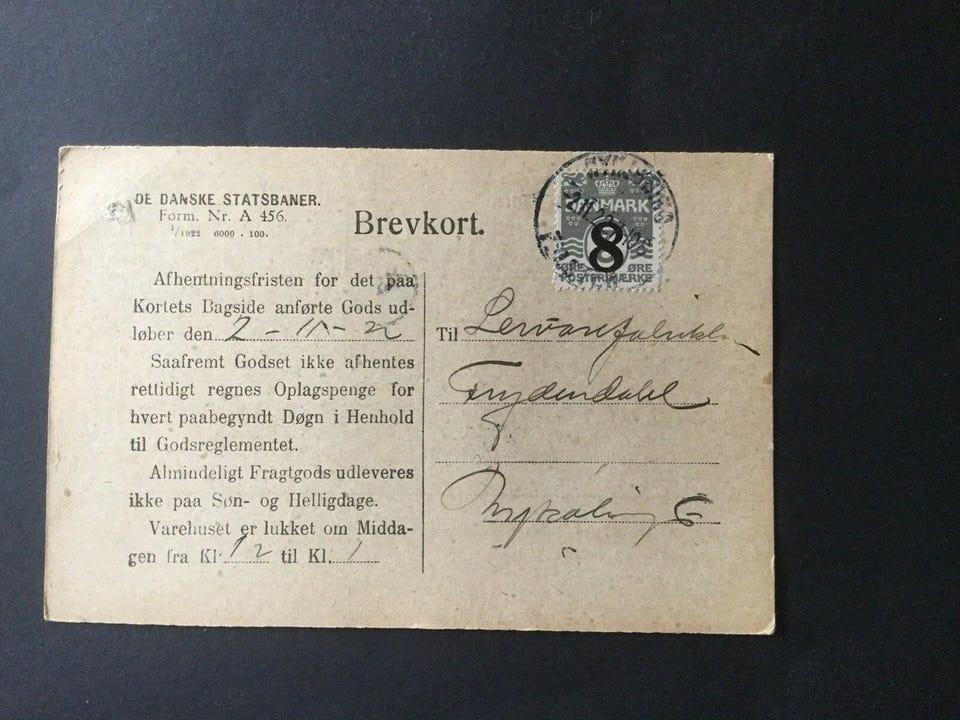 DE DANSKE STATSBANER.
Form. Nr. A 456.
1/1922 6000 - 100.
Brevkort.
DANMARK
8
ØRE ØRE
POSTFRIMÆRKE
Afhentningsfristen for det paa
Kortets Bagside anførte Gods ud-
løber den 2-11-22
Saafremt Godset ikke afhentes
rettidigt regnes Oplagspenge for
hvert paabegyndt Døgn i Henhold
til Godsreglementet.
Almindeligt Fragtgods udleveres
ikke paa Søn- og Helligdage.
Varehuset er lukket om Midda-
gen fra Kl. 12 til Kl. 1
Til
Frydendahl